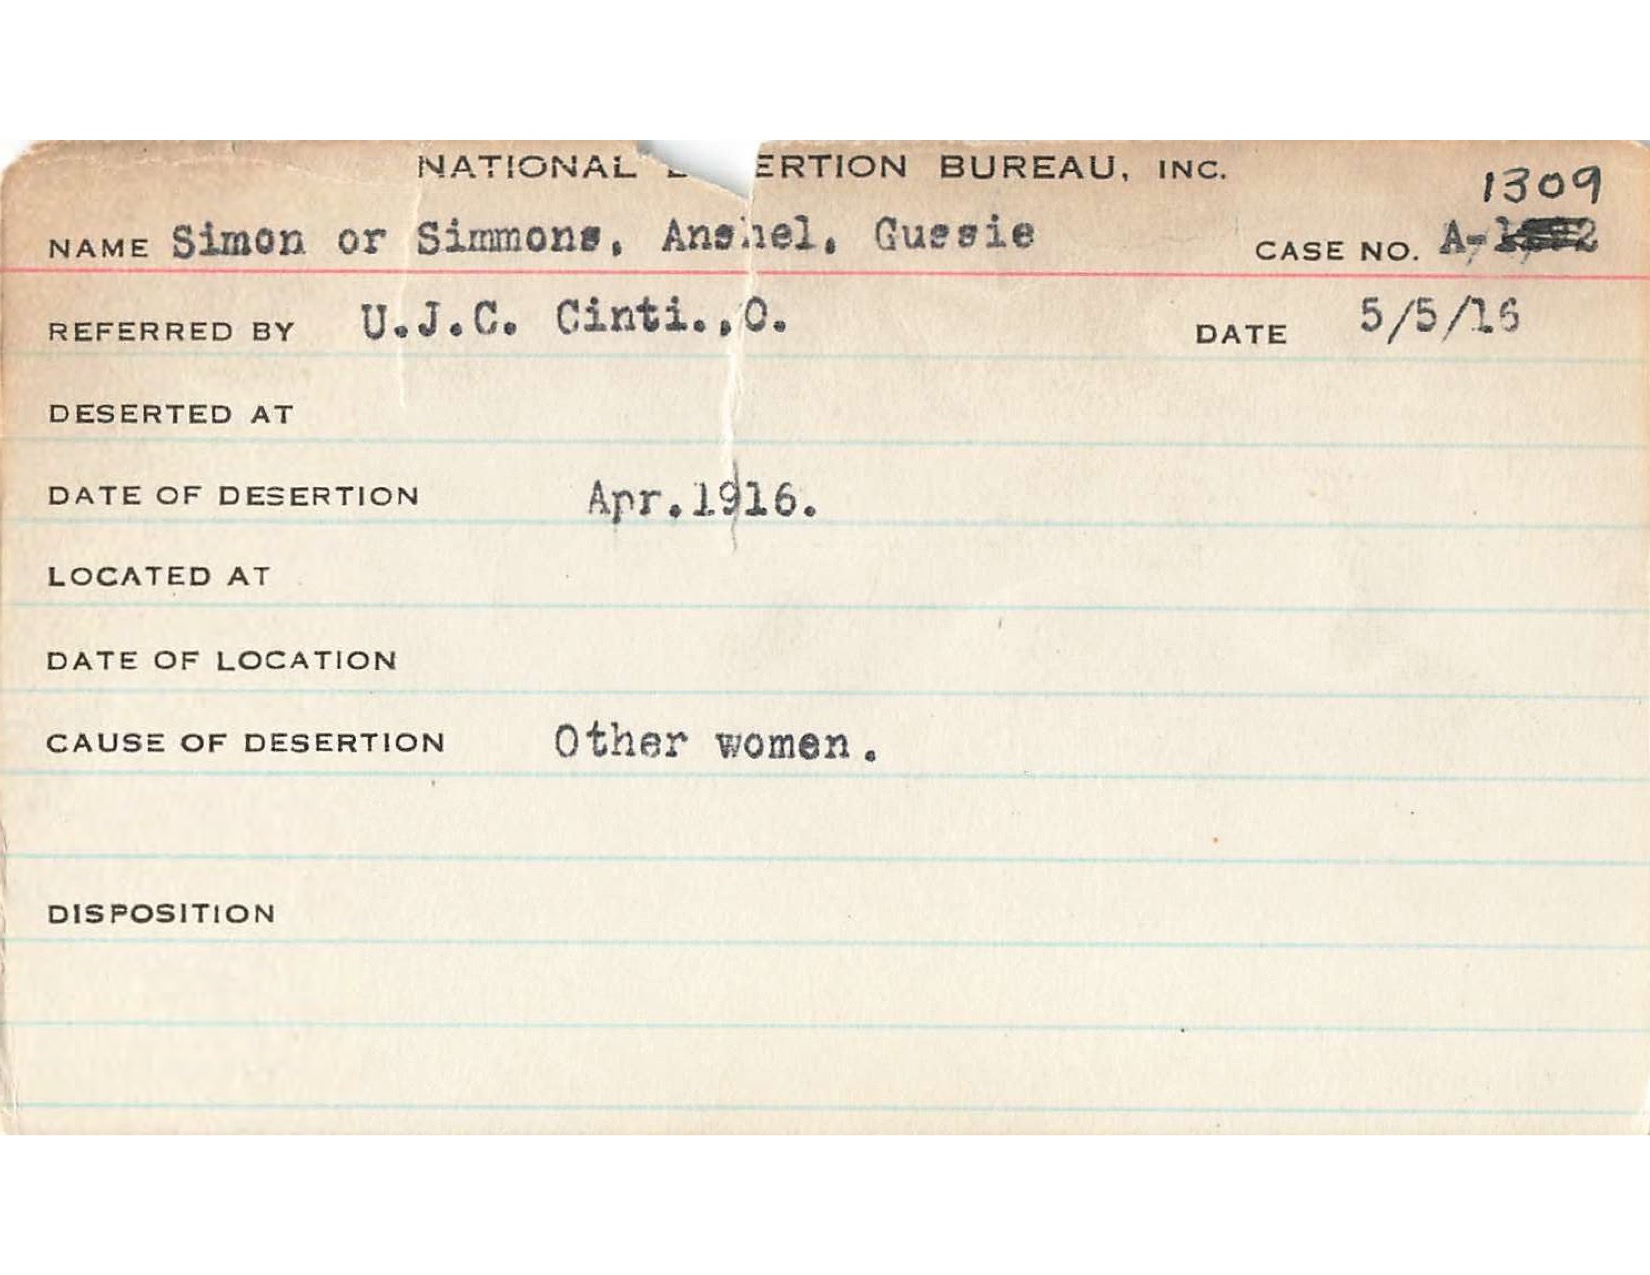 NATIONAL ERTION BUREAU, INC.
1309
NAME Simon or Simmons, Anshel, Gussie CASE NO. A-
REFERRED BY U.J.C. Cinti.,O. DATE 5/5/16
DESERTED AT
DATE OF DESERTION Apr.1916.
LOCATED AT
DATE OF LOCATION
CAUSE OF DESERTION Other women.
DISPOSITION